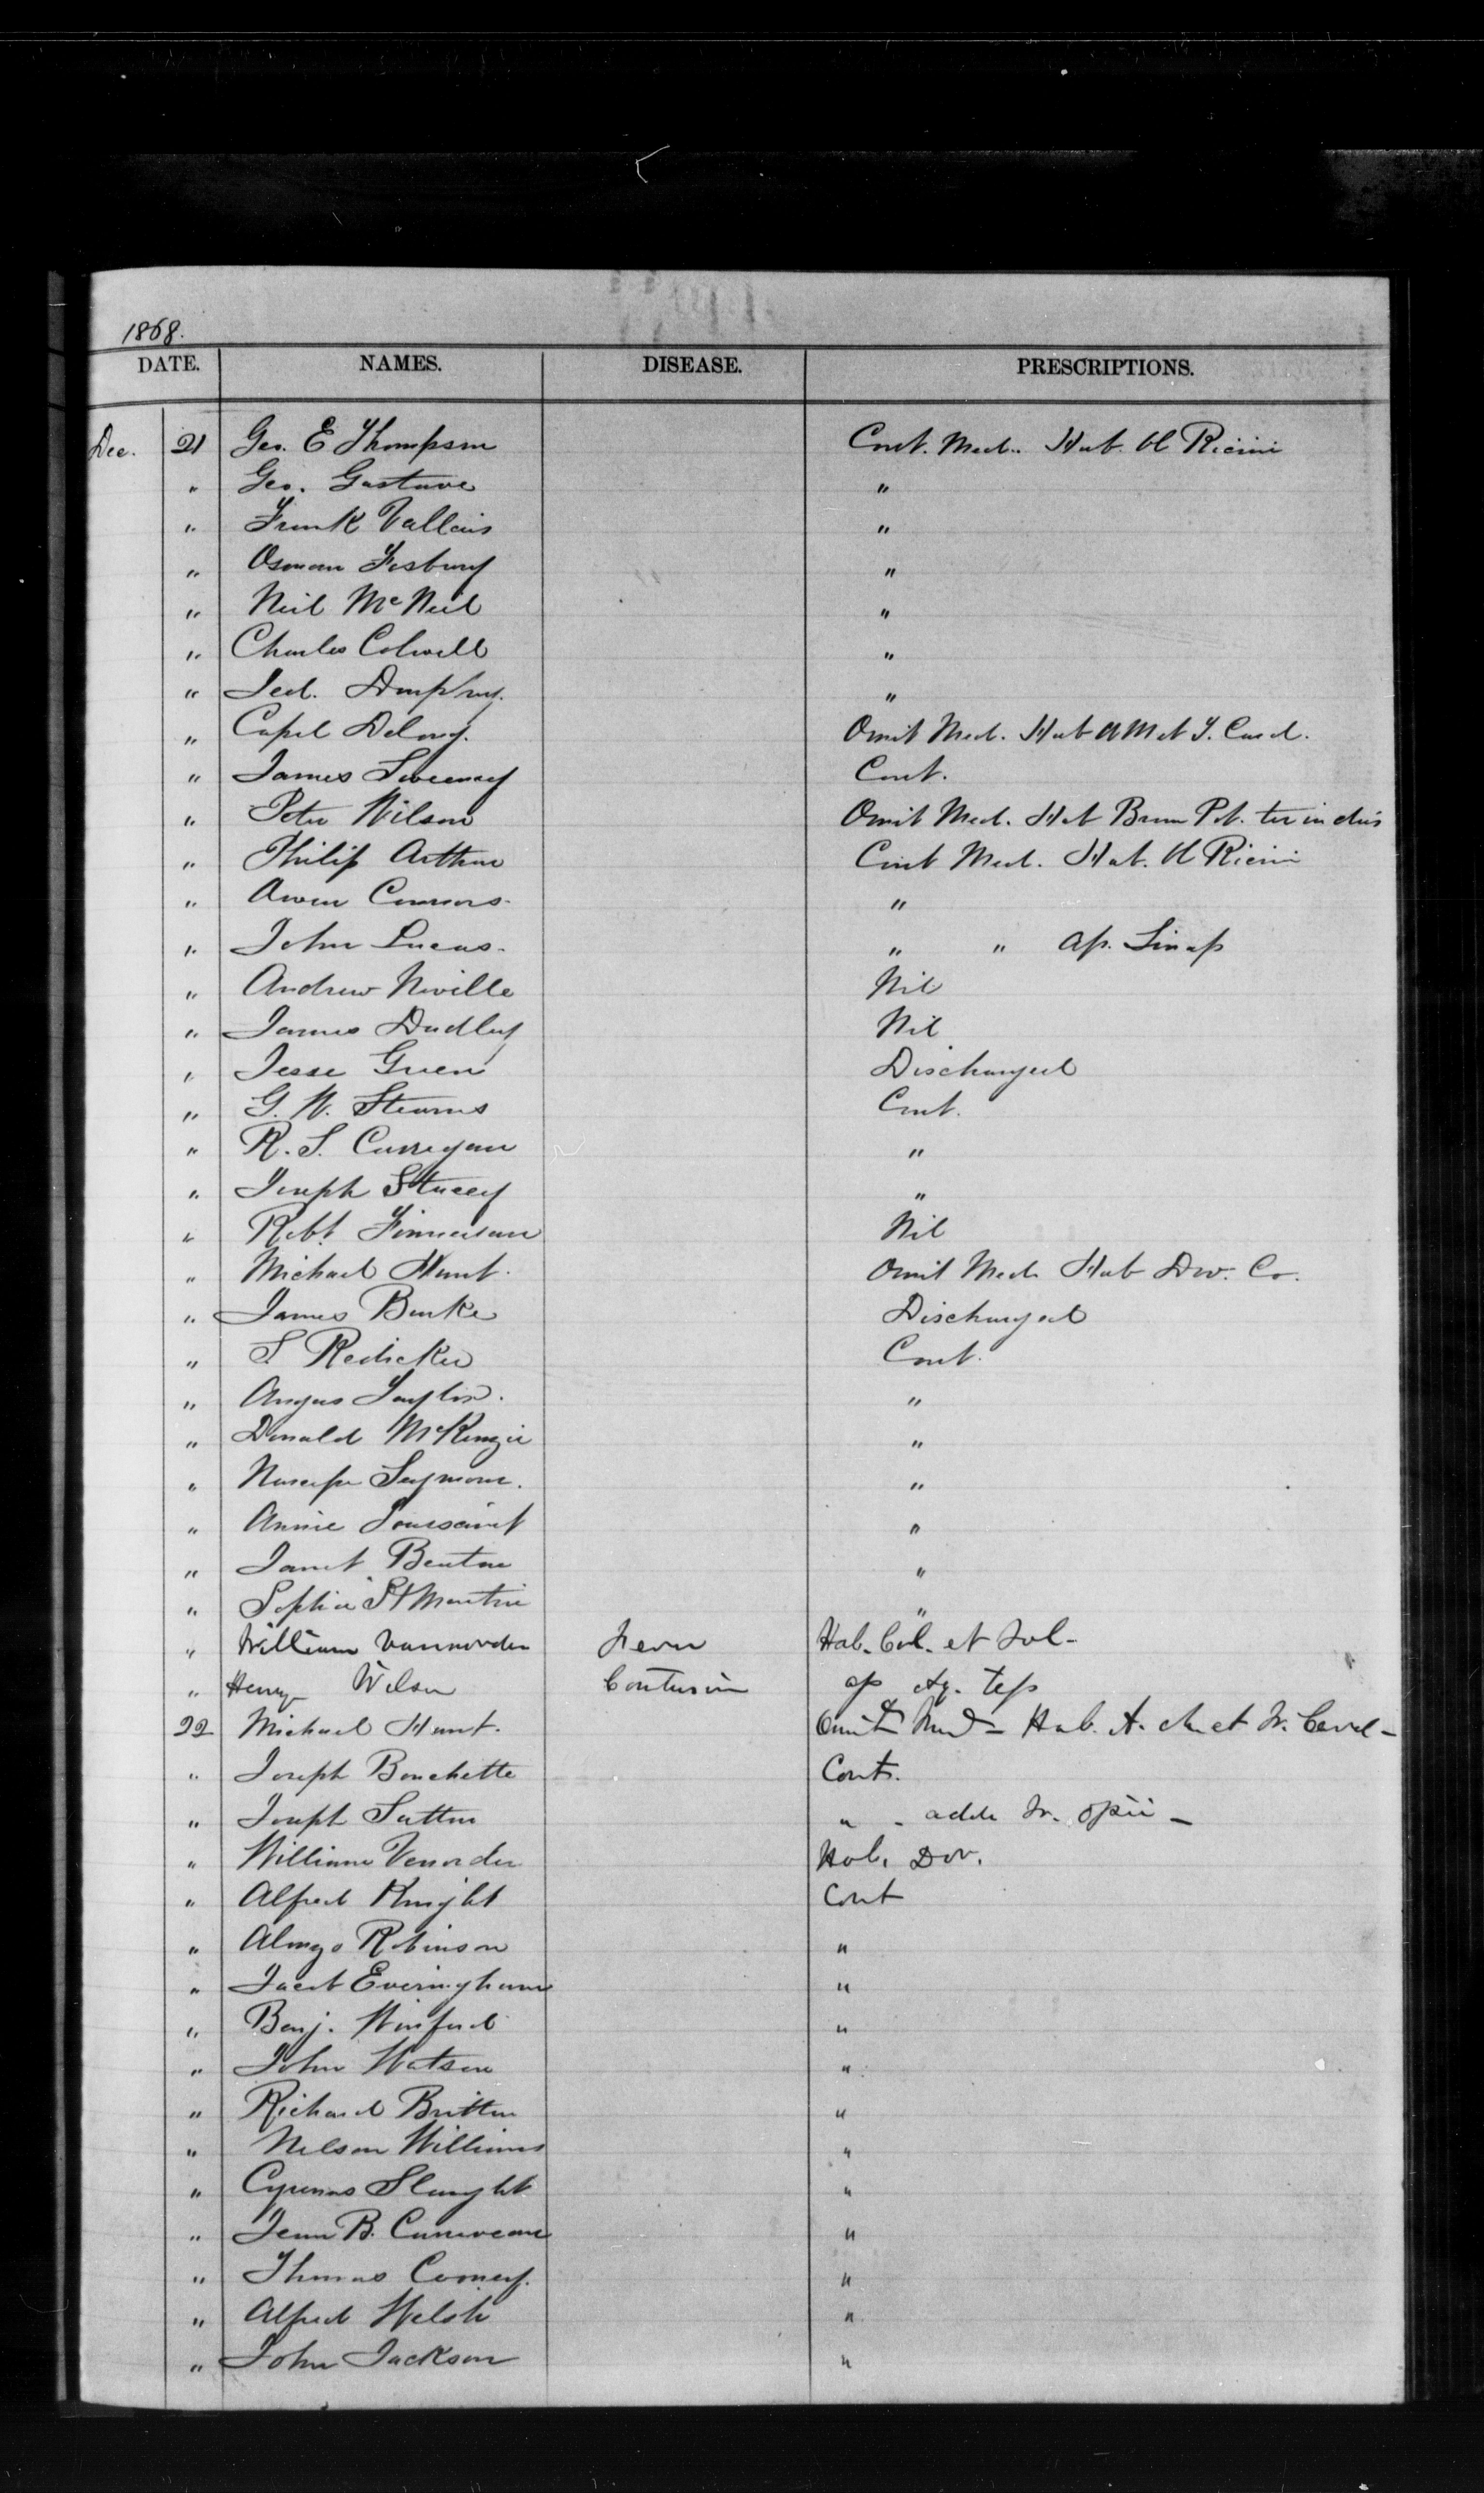 1868.
DATE. NAMES. DISEASE. PRESCRIPTIONS.
Dec. 21 Geo. E Thompson Cont. Med. Hab. Ol Ricini
" Geo. Gustave "
" Frank Vallais "
" Osman Fosbury "
" Neil McNeil "
" Charles Colwell "
" Jed. Dunphy. "
" Capel Delong. Omit Med. Hab A M et T. Card.
" James Sweeney Cont.
" Peter Wilson Omit Med. Hab Brom Pot. ter in dies
" Philip Arthur Cont Med. Hab. Ol Ricini
" Owen Connors. "
" John Lucas. " " Ap. Sinap
" Andrew Neville Nil
" James Dudley Nil
" Jesse Green Discharged
" G. W. Stearns Cont.
" R. S. Corregan "
" Joseph Stacey "
" Robt. Finnerson Nil
" Michael Hunt. Omit Med. Hab Dov. Co.
" James Burke Discharged
" S Redicker Cont.
" Angus Taylor. "
" Donald McKenzie "
" Seymour. "
" Annie Toussaint "
" Janet Benton "
" Sophia St Martin "
" William Vannorden Fever Hab. Col. et Sol-
" Henry Wilson Contusion ap Aq. tep
22 Michael Hunt. Omit Med - Hab. A. et Tr. Card -
" Joseph Bouchette Cont.
" Joseph Sutton " - adde Tr. Opii -
" William Venorden Hab. Dov.
" Alfred Knight Cont
" Alonzo Robinson "
" Jacob Everingham "
" Benj. Winford "
" John Watson "
" Richard Britton "
" Nelson Williams "
" Cyrenas Slaught "
" Jean B. "
" Thomas Cooney. "
" Alfred Welsh "
" John Jackson "